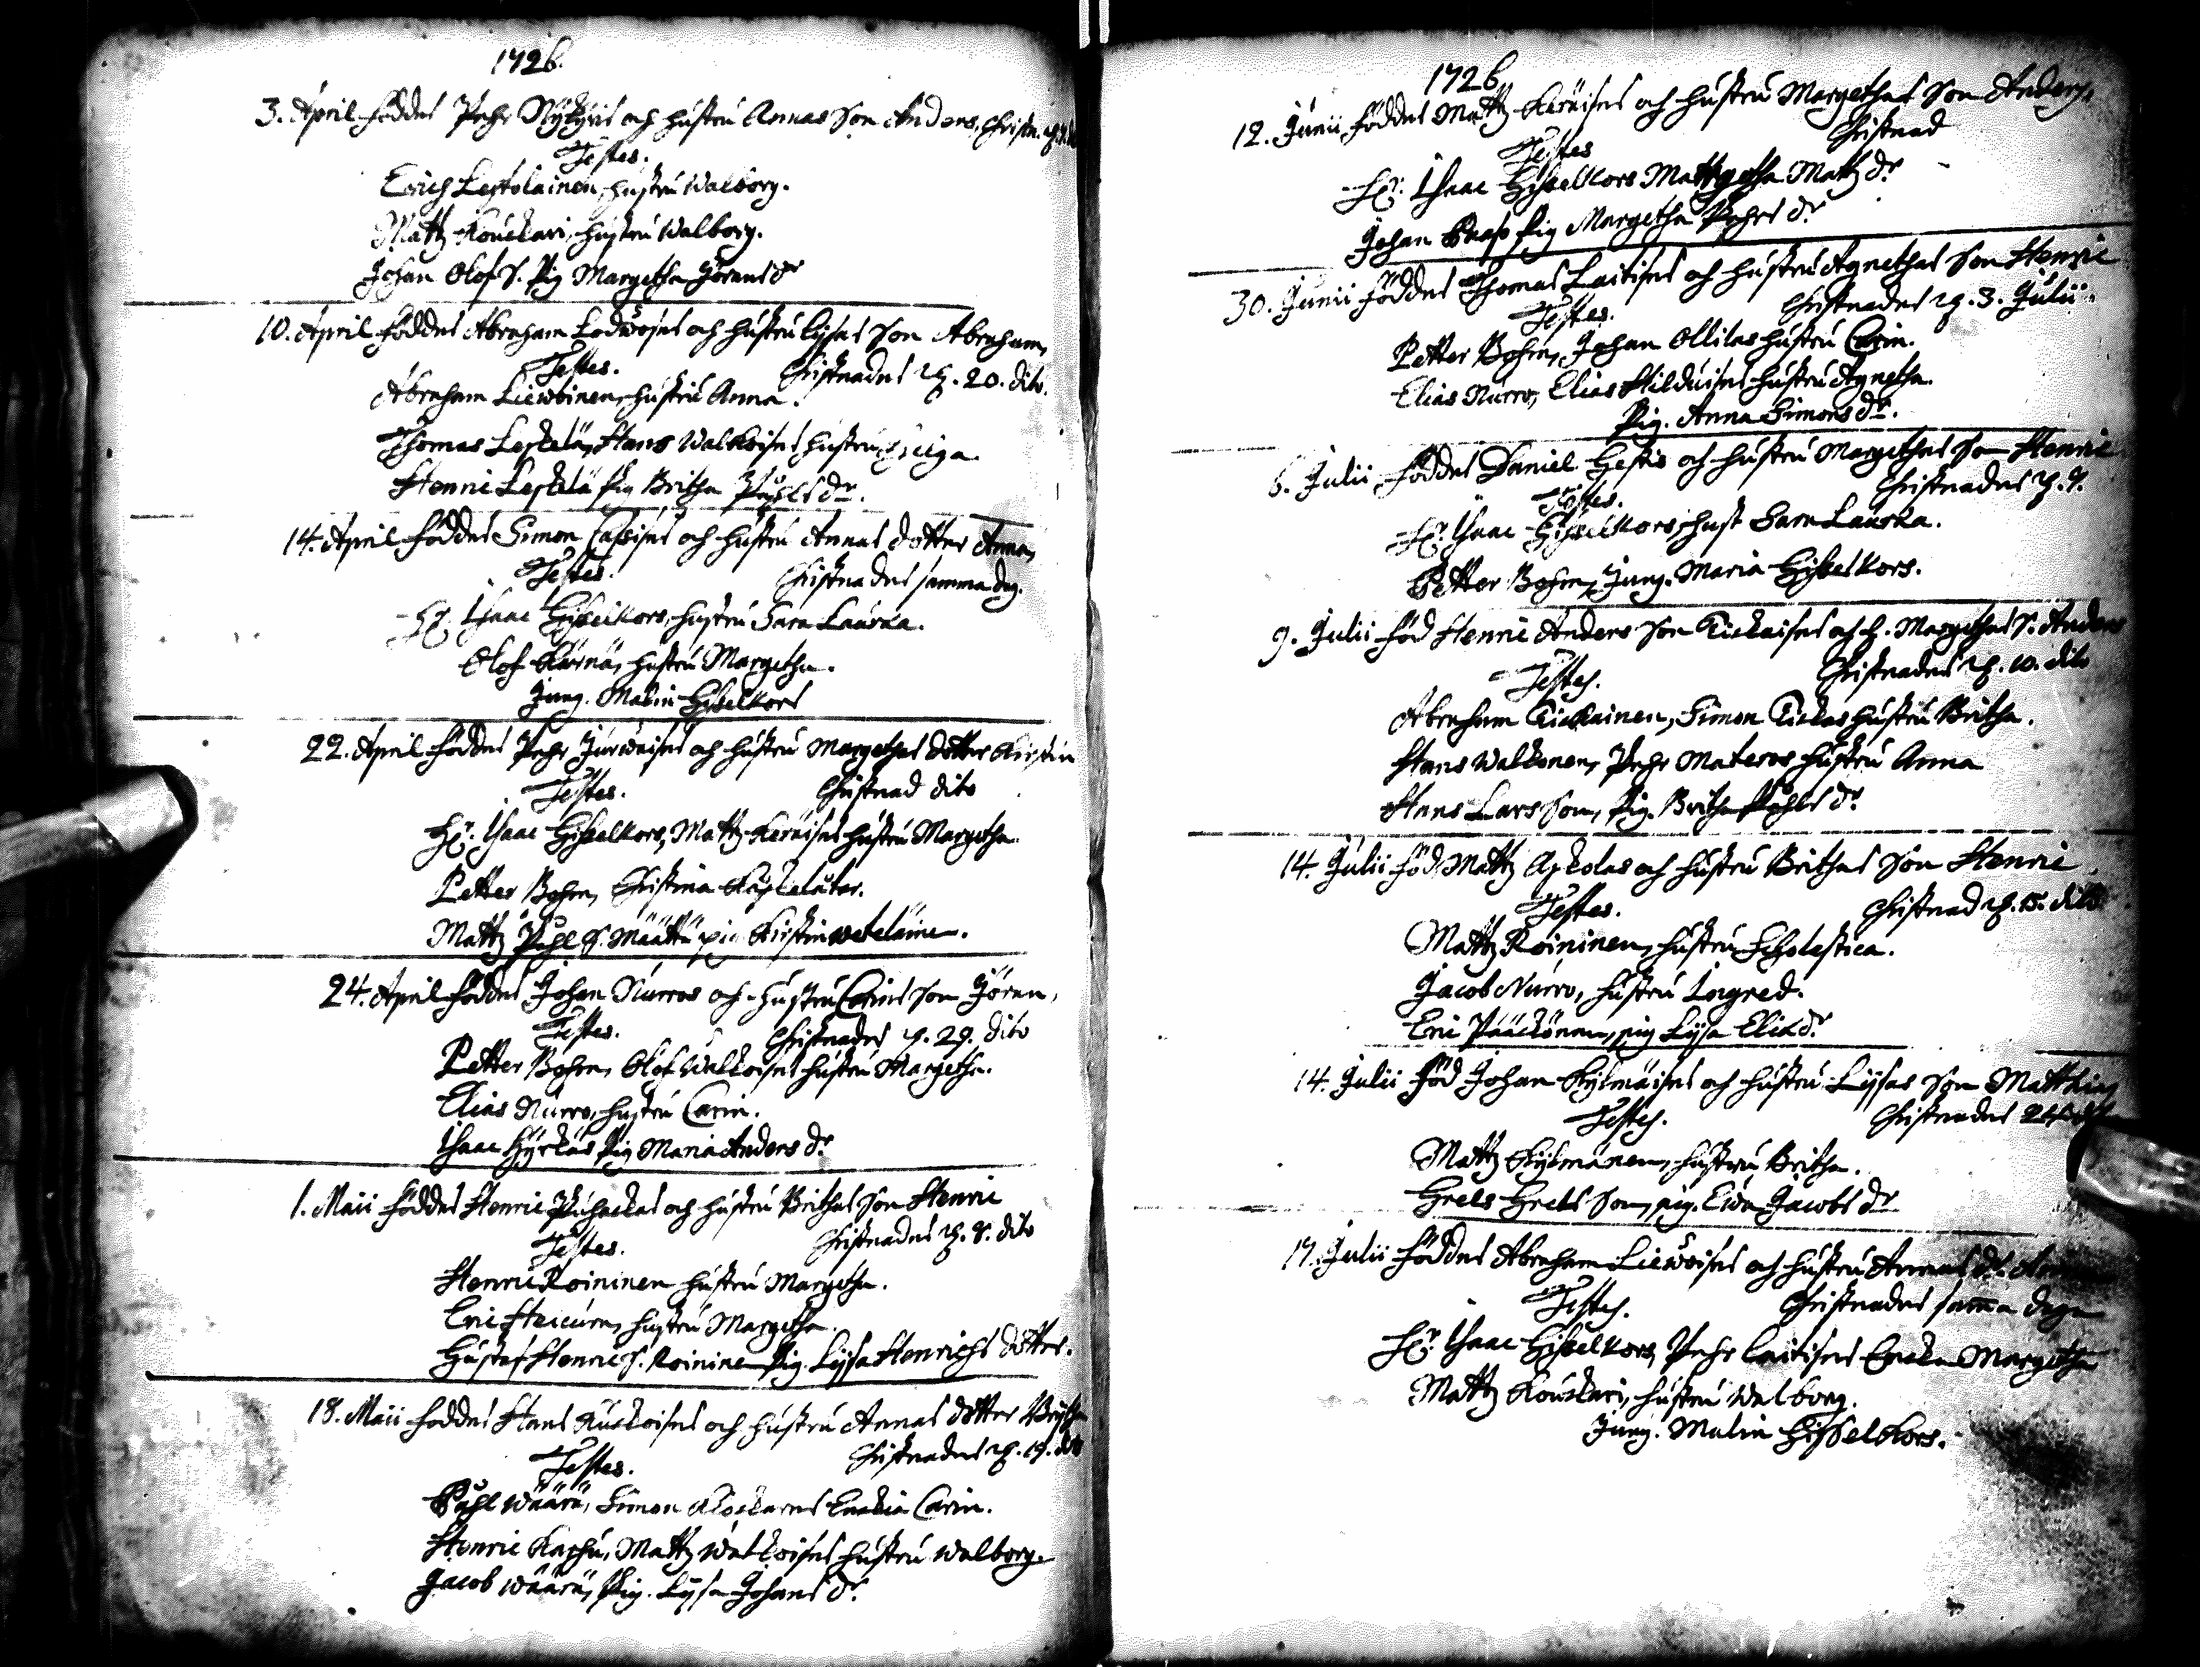 1726.
3. April föddes Pehr Nykyris och hustru Annas Son Anders, Christn.
Testes.
Erich Leskelainen, hustru Walborg.
Mattz Kouckari, hustru Walborg.
Johan Olof S. Pig Margetha Jörans dr
10. April föddes Abraham Lodwises och hustru Lysas Son Abraham,
Testes. Christnades d. 20. dito.
Abraham Liewoinen, hustru Anna.
Thomas Leskelä, Hans Walkoises hustru
Henric Leskelä Pig Britha Påhls dr.
14. April föddes Simon Cassises och hustru Annas dotter Anna,
Testes. Christnades samma dag.
Hr. Isaac Hisselkors, hustru Sara Lauska.
Olof Kärnä, hustru Margetha.
Jung. Malin Hisselkors
22. April föddes Pehr Jurwaises och hustru Margethas dotter Kirstin
Testes. Christnad dito
Hr. Isaac Hisselkors, Mattz Keräises hustru Margetha.
Petter Bohm, Christina
Mattz Påhl S. Määttä pig Kirstin
24. April föddes Johan Nurros och hustru Carins son Jöran,
Testes. Christnades d. 29. dito
Petter Bohm, Olof Walkoises hustru Margetha.
Elias Nurro, hustru Carin.
Isaac Hyrkäs Pig Maria Anders dr
1. Maii föddes Henric Puhackas och hustru Brithas Son Henric
Testes. Christnades d. 8. dito
Henric Roininen hustru Margetha.
Eric Heicura, hustru Margetha.
Gustaf Henric S. Roininen Pig. Lysa Henrichs dotter.
18. Maii föddes Hans Kuckoises och hustru Annas dotter Brytha
Testes. Christnades d. 19. dito
Påhl Wäärä, Simon Enckia Carin.
Henric Karhu, Mattz Walkoises hustru Walborg.
Jacob Wäärä, Pig. Lysa Johans dr.
1726
12. Junii föddes Mattz Keräises och hustru Margethas Son Anders,
Testes Christnad
Hr. Isaac Hisselkors Mattz dr
Johan Paaso Pig Margetha Pehrs dr
30. Junii föddes Thomas Laitises och hustru Agnethas Son Henric
Testes. Christnades d. 3. Julii.
Petter Bohm, Johan Ollilas hustru Carin.
Elias Nurro, Elias Hilduises hustru Agnetha.
Pig. Anna Simons dr.
6. Julii föddes Daniel och hustru Margethas Son Henric
Testes. Christnades d. 7.
Hr. Isaac Hisselkors, hust Sara Lauska.
Petter Bohm, Jung. Maria Hisselkors.
9. Julii född Henric Anders Son Kickaises och h. Margethas S. Anders
Testes. Christnades d. 10. dito
Abraham Kickainen, Simon Kickas hustru Britha.
Hans Walkonen, Pehr Materos hustru Anna
Hans Lars Son, Pig. Britha Påhls dr
14. Julii föd Mattz Askolas och hustru Brithas Son Henric
Testes. Christnad d. 15. dito
Mattz Roininen, hustru Scholestica.
Jacob Nurro, hustru Ingred.
Eric Pääckönen, pig Lysa Elia dr
14. Julii föd Johan Kylmäises och hustru Lysas Son Matthias
Testes. Christnades 24
Mattz Kylmänen, hustru Britha.
Grels Grels Son, pig. Ewa Jacobs dr
17. Julii föddes Abraham Liewoises och hustru Annas dr
Testes. Christnades samma dagen
Hr. Isaac Hisselkors, Pehr Laitises Encka Margetha
Mattz Kouckari, hustru Walborg.
Jung. Malin Hisselkors.